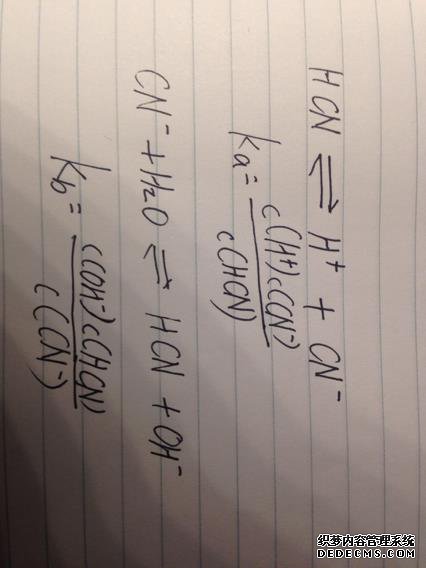 HCN ⇌ H⁺ + CN⁻
Ka = c(H⁺)c(CN⁻)
c(HCN)
CN⁻ + H₂O ⇌ HCN + OH⁻
Kb = c(OH⁻)c(HCN)
c(CN⁻)
织梦内容管理系统
DEDECMS.COM